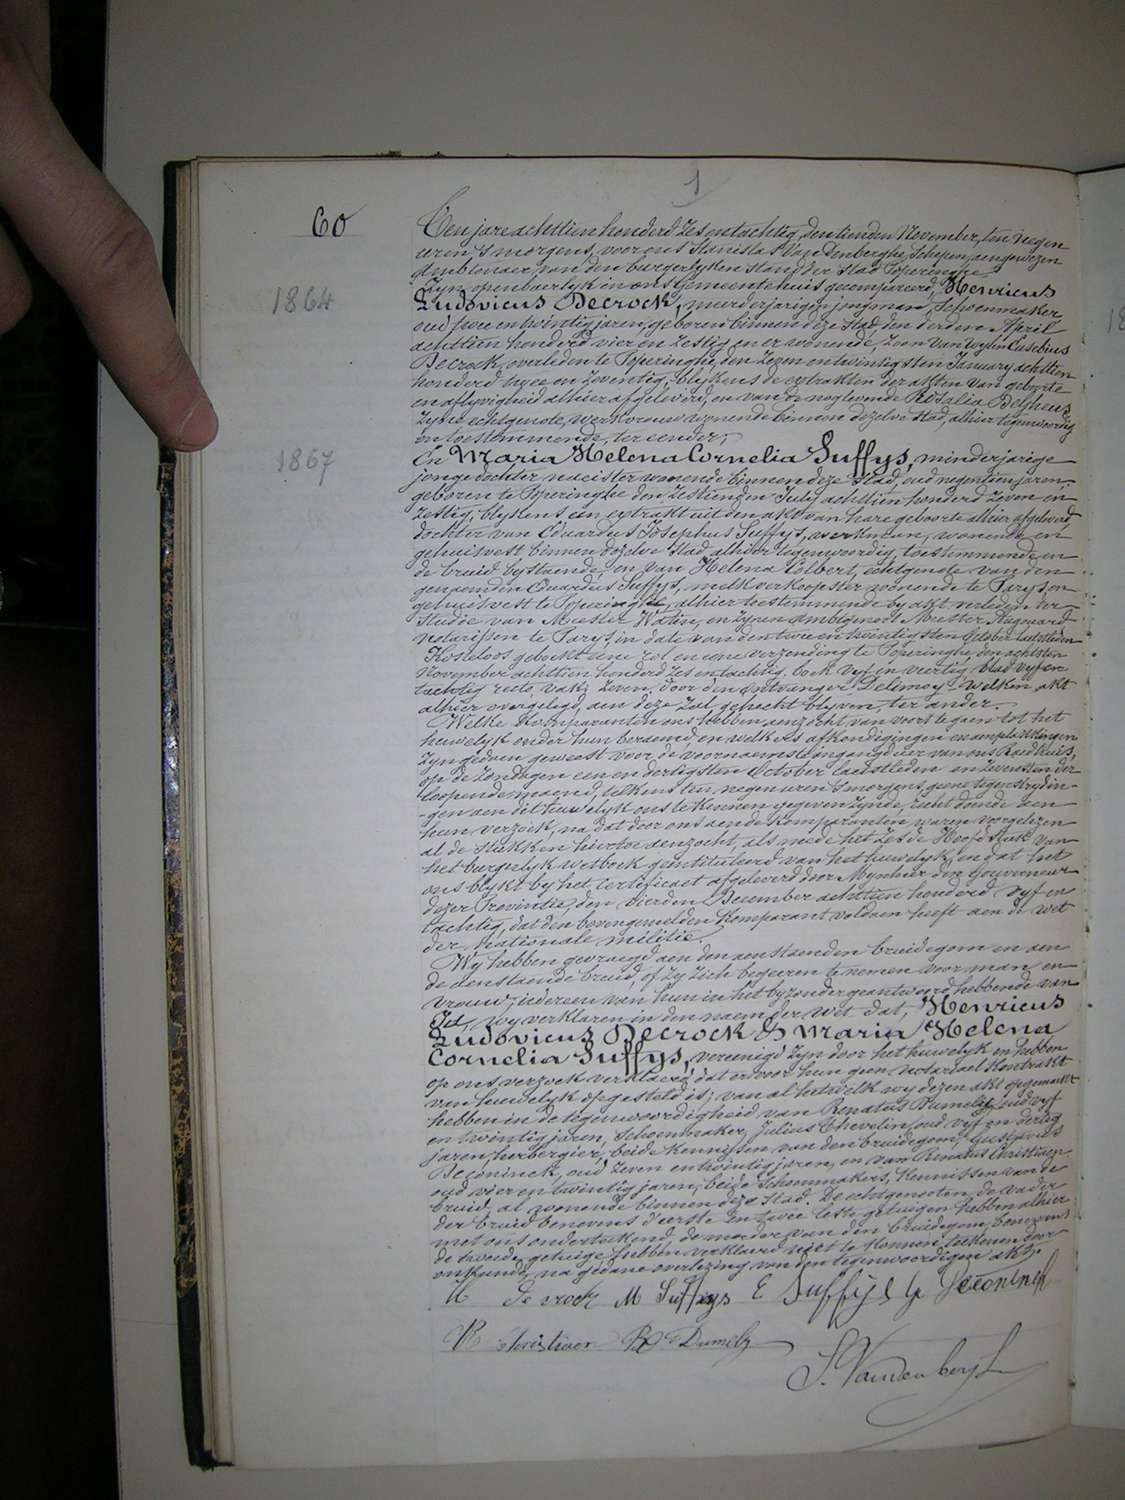 1
60
Een jare achttien honderd zes en tachtig, den tienden November, ten negen
uren 's morgens, voor ons Stanislas Van Denberghe, Schepen, aengewezen
Ambtenaer van den burgerlyken stand der Stad Poperinghe
Zyn openbaerlyk in ons Gemeentehuis gecompareerd, Henricus
1864
Ludovicus Decrock, meerderjarige jongman, Schoenmaker
oud twee en twintig jaren, geboren binnen deze Stad den derden April
achttien honderd vier en zestig en er wonende, zoon van wylen Eusebius
Decrock, overleden te Poperinghe, den zeven en twintigsten January achttien
honderd twee en zeventig, blykens de extrakten der akten van geboorte
en aflyvigheid alhier afgeleverd, en van de noglevende Rosalia
zyne echtgenote, werkvrouw wonende binnen dezelve Stad, alhier tegenwoordig
en toestemmende, ter eender;
1867
En Maria Helena Cornelia Suffys, minderjarige
jonge dochter naeister wonende binnen deze Stad, oud negentien jaren,
geboren te Poperinghe den zestienden July achttien honderd zeven en
zestig, blykens een extrakt uit den akt van hare geboorte alhier afgeleverd,
dochter van Eduardus Josephus Suffys, werkman, wonende en
gehuisvest binnen dezelve Stad, alhier tegenwoordig, toestemmende en
de bruid bystaende, en van Helena Colbert, echtgenote van den
genoemden Eduardus Suffys, melkverkoopster, wonende te Parys en
gehuisvest te Poperinghe, alhier toestemmende by akt verleden ter
Studie van Meester Watin, en zynen ambtgenoot Meester
notarissen te Parys, in date van den twee en twintigsten October laetstleden
Kosteloos geboekt eene rol en eene verzending te Poperinghe, den achtsten
November achttien honderd zes en tachtig, boek vyf en veertig, blad vyf en
tachtig recto, vak zeven. Door den Ontvanger Delimoy. Welken akt
alhier overgelegd, aen deze zal gehecht blyven, ter ander.
Welke Komparanten ons hebben aenzocht, van voorts te gaen tot het
huwelyk onder hun beraemd en welkers afkondigingen en
zyn gedaen geweest voor de voornaemste ingangdeur van ons Raedhuis,
op de zondagen een en dertigsten October laetstleden en zevensten der
loopende maend, telkens ten negen uren 's morgens, geene tegenstrydin-
-gen aen dit huwelyk ons te kennen gegeven zynde, recht doende aen
hun verzoek, na dat door ons aen de Komparanten waren voorgelezen
al de Stukken hiertoe aenzocht, als mede het zesde Hoofdstuk van
het burgerlyk wetboek geintituleerd van het huwelyk, en dat het
ons blykt by het Certificaet afgeleverd door Mynheer den Gouverneur
dezer Provintie, den vierden December achttien honderd vyf en
tachtig, dat den bovengemelden Komparant voldaen heeft aen de wet
der nationale militie.
Wy hebben gevraegd aen den aenstaenden bruidegom en aen
de aenstaende bruid, of zy zich begeeren te nemen voor man en
vrouw: iedereen van hun in het byzonder geantwoord hebbende van
Ja, wy verklaren in den naem der wet dat, Henricus
Ludovicus Decrock & Maria Helena
Cornelia Suffys, vereenigd zyn door het huwelyk en hebben
op ons verzoek verklaerd dat er voor hun geen notariael Kontrakt
van huwelyk opgesteld is; van al hetwelk wy dezen akt opgemaekt
hebben in de tegenwoordigheid van Renatus Dumelz, oud vyf
en twintig jaren, Schoenmaker, Julius Thevelin, oud vyf en dertig
jaren, herbergier, beide Kennissen van den bruidegom, Gustavus
Deconinck, oud zeven en twintig jaren, en van Renatus Christiaen
oud vier en twintig jaren, beide Schoenmakers, Kennissen van de
bruid, al wonende binnen deze Stad. De echtgenooten, de vader
der bruid benevens d'eerste en twee leste getuigen hebben alhier
met ons onderteekend, de moeder van den bruidegom, benevens
de tweede getuige hebben verklaerd niet te konnen teekenen door
onkunde, na gedane voorlezing van den tegenwoordigen akt.
H De crock M Suffys E Suffys G Deconinck
R Christiaen R Dumelz
S. Vandenberghe
18